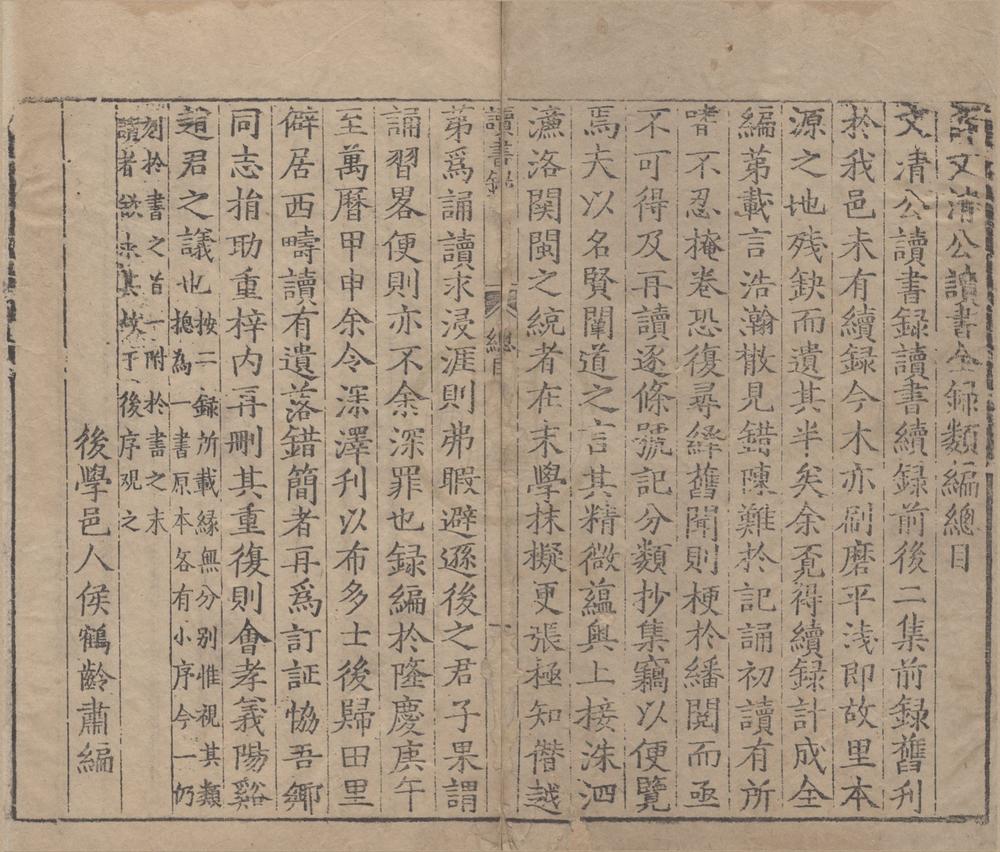 薛文清公讀書全録類編總目
文清公讀書録讀書續録前後二集前録舊刊
於我邑未有續録今木亦刷磨平淺即故里本
源之地残缺而遺其半矣余覔得續録計成全
編第載言浩瀚散見錯陳難於記誦初讀有所
嗜不忍掩卷恐復尋繹舊聞則梗於繙閱而亟
不可得及再讀逐條號記分類抄集竊以便覽
焉夫以名賢闡道之言其精微藴奥上接洙泗
濂洛関閩之統者在末學抹擬更張極知僭越
讀書録 總目 一
第為誦讀求浸涯則弗暇避遜後之君子果謂
誦習畧便則亦不余深罪也録編於隆慶庚午
至萬曆甲申余令深澤刊以布多士後歸田里
僻居西疇讀有遺落錯簡者再為訂証恊吾鄉
同志捐助重梓内再刪其重復則會孝義陽谿
趙君之議也按二録所載緣無分别惟視其類
揔為一書原本各有小序今一仍
刻於書之首一附於書之末
讀者欲求其故于後序观之
後學邑人侯鶴齡肅編